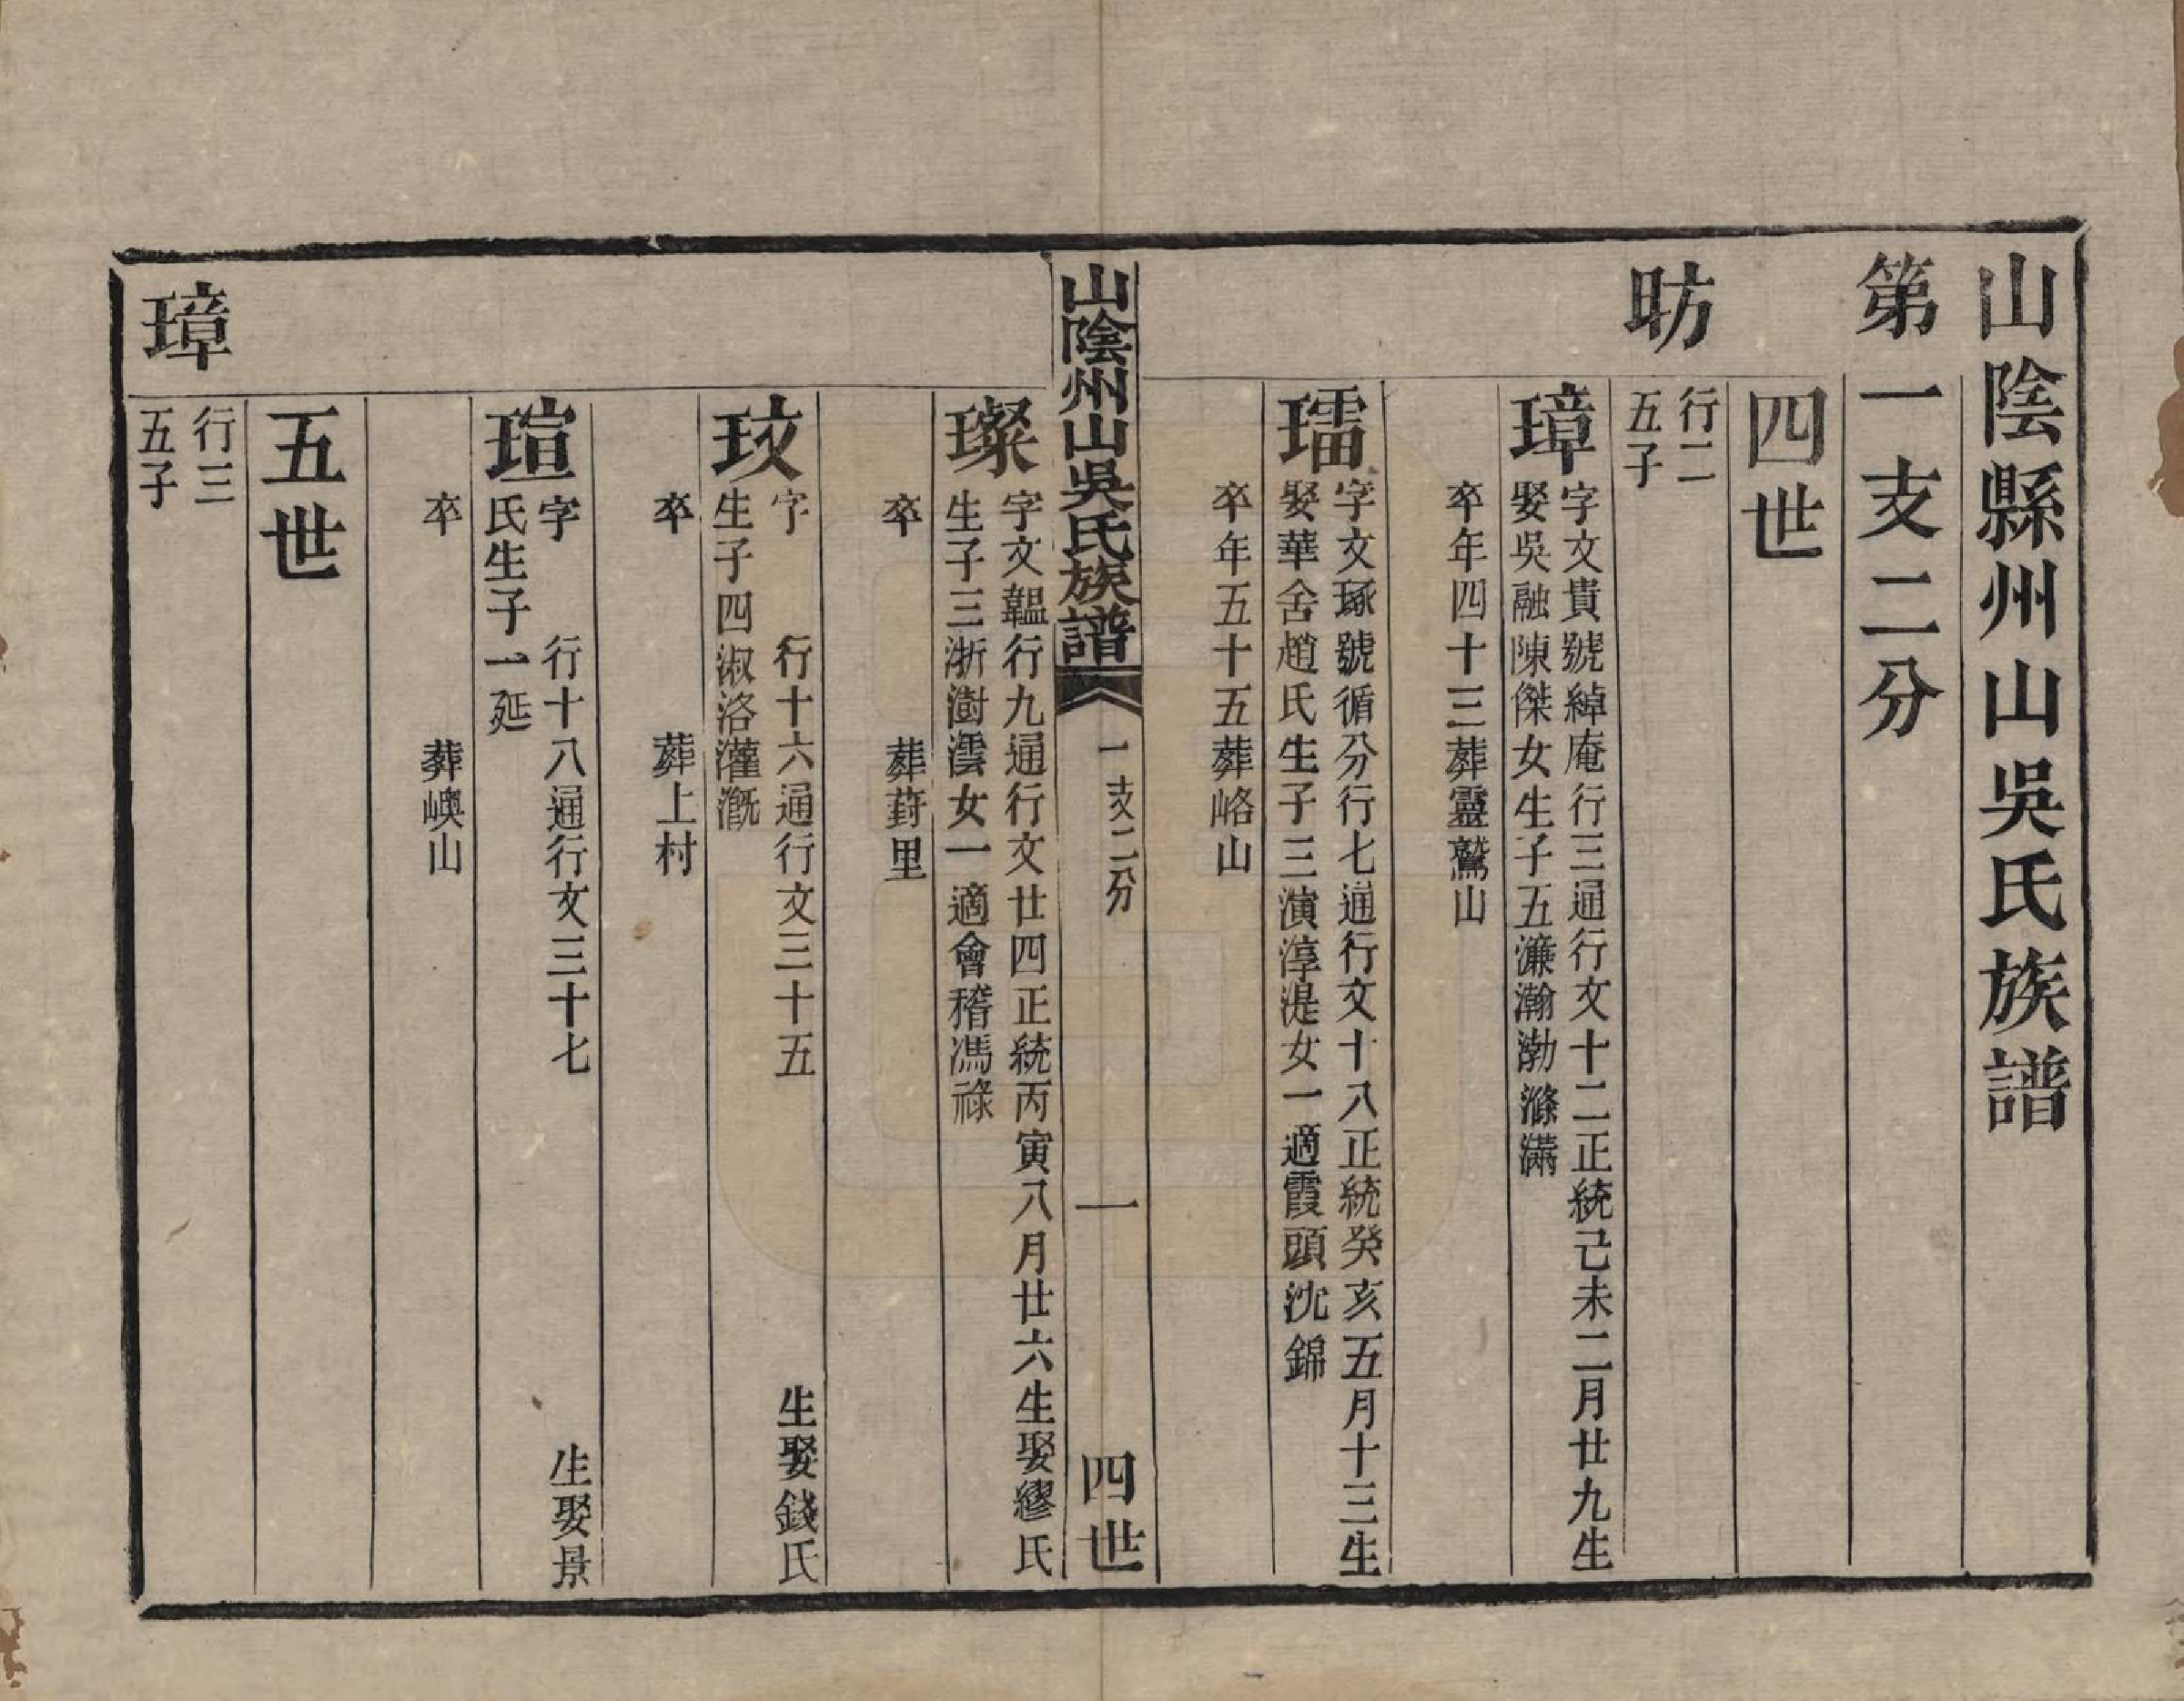 山陰縣州山吳氏族譜
第一支二分
四世
昉
行二
五子
璋
字文貴號綽庵行三通行文十二正統己未二月廿九生
娶吳融陳傑女生子五濂瀚渤滌滿
卒年四十三葬靈鷲山
瓀
字文琢號循分行七通行文十八正統癸亥五月十三生
娶華舍趙氏生子三演淳湜女一適霞頭沈錦
卒年五十五葬峈山
山陰州山吳氏族譜
一支二分
一
四世
璨
字文韞行九通行文廿四正統丙寅八月廿六生娶繆氏
生子三浙澍澐女一適會稽馮祿
卒 葬葑里
玟
字 行十六通行文三十五 生娶錢氏
生子四淑洛灌溉
卒 葬上村
瑄
字 行十八通行文三十七 生娶景
氏生子一延
卒 葬嶴山
五世
璋
行三
五子